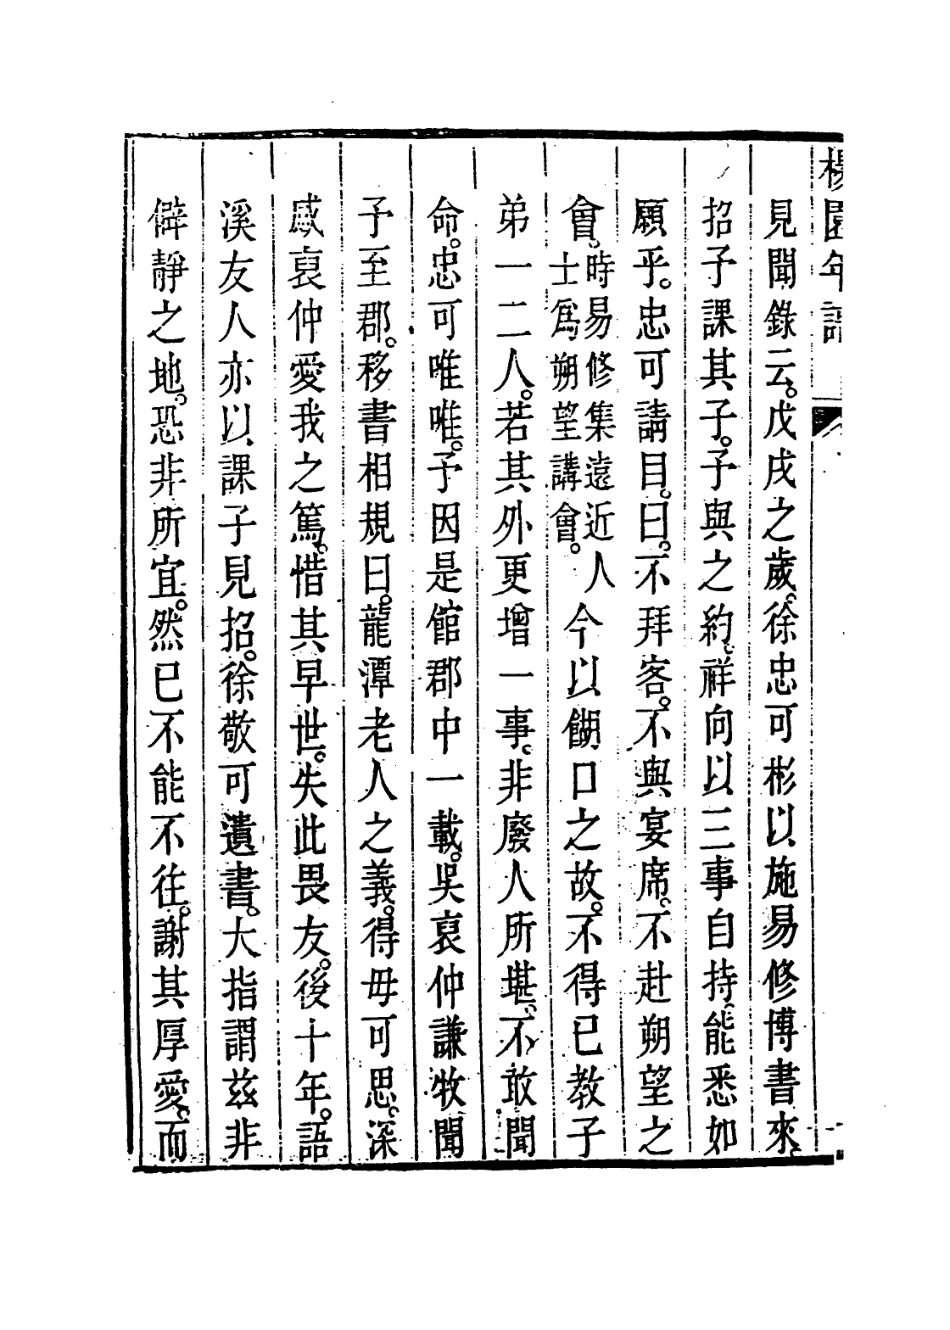 楊園年譜
見聞錄云。戊戌之歲。徐忠可彬以施易修博書來。
招予課其子。予與之約。祥向以三事自持。能悉如
願乎。忠可請目。曰。不拜客。不與宴席。不赴朔望之
會。時易修集遠近人士爲朔望講會。今以餬口之故。不得已教子
弟一二人。若其外更增一事。非廢人所堪。不敢聞
命。忠可唯唯。予因是館郡中一載。吳裒仲謙牧聞
予至郡。移書相規曰。龍潭老人之義。得毋可思。深
感裒仲愛我之篤。惜其早世。失此畏友。後十年。語
溪友人亦以課子見招。徐敬可遺書。大指謂茲非
僻靜之地。恐非所宜。然已不能不往。謝其厚愛。而